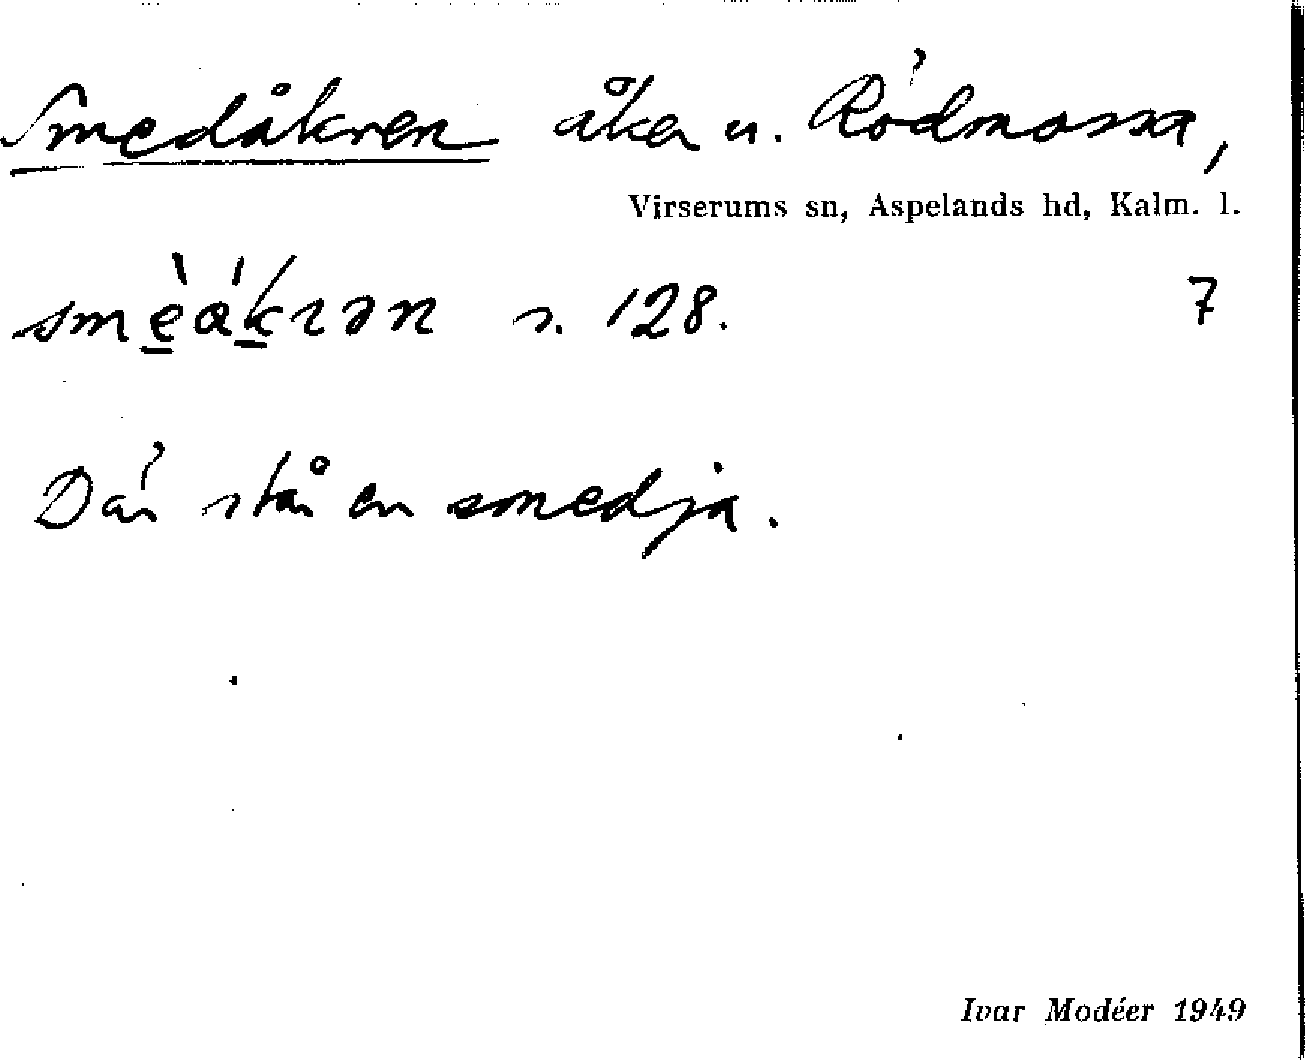 Smedåkren åker u. Rödmossa,
Virserums sn, Aspelands hd, Kalm. l.
s. 128. 7
Där står en smedja.
Ivar Modéer 1949